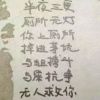 半夜三更
厕所无灯
你上厕所
掉进茅坑
与蛆搏斗
与屎抗争
无人救你